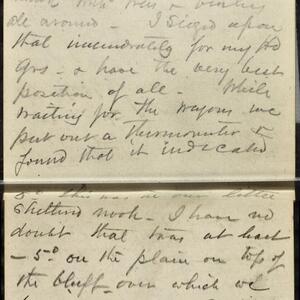 de around - I seized upon
that immediately for my Hd
Qrs - & have the very best
position of all. While
waiting for the wagons we
put out a thermometer &
found that it indicated
5° this was in our little
sheltered nook - I have no
doubt that twas at least
- 5° on the plain on top of
the bluff over which we